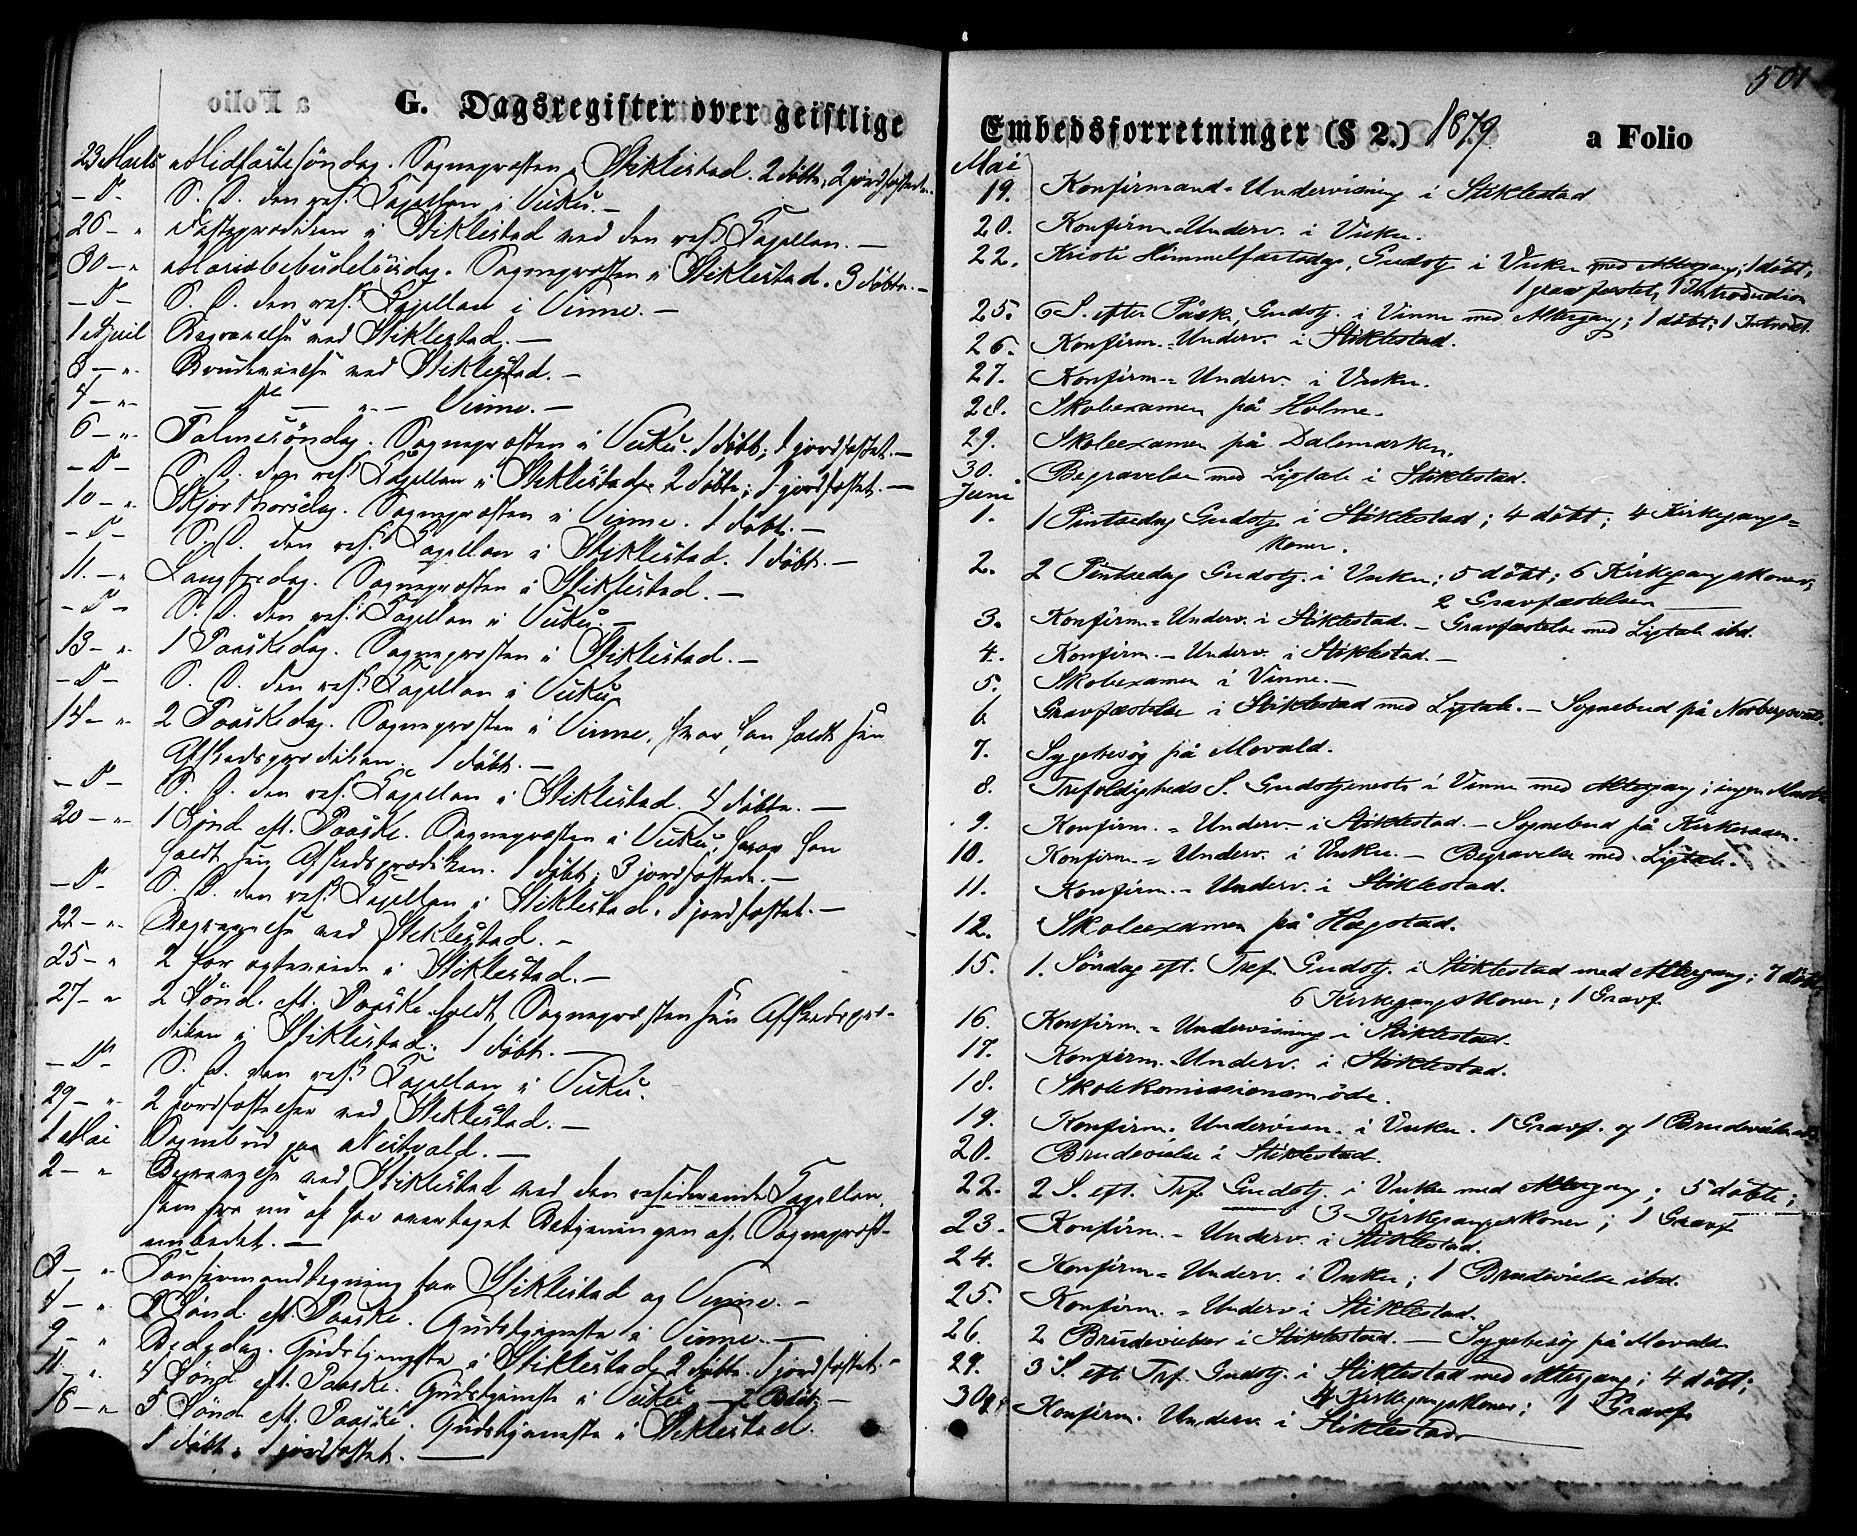 G. Dagsregister over geistlige
23 Marts Midfastesöndag. Sognepræsten i Stiklestad. 2 döbte, 2 jordfæstede.
- D - S. D. den res. Capellan i Vuku. -
26 - " Fasteprædiken i Stiklestad ved den res. Capellan. -
30 - " Mariæbebudelsesdag. Sognepræsten i Stiklestad. 3 döbte. -
- D - S. D. den res. Capellan i Vinne. -
1 April Begravelse ved Stiklestad. -
3 - " Brudevielse ved Stiklestad. -
4 - " - do - " - Vinne. -
6 - " Palmesöndag. Sognepræsten i Vuku. 1 döbt; 1 jordfæstet. -
- D - S. D. den res. Capellan i Stiklestad. 2 döbte; 1 jordfæstet. -
10 - " Skjærthorsdag. Sognepræsten i Vinne. 1 döbt. -
- D - S. D. den res. Capellan i Stiklestad. 1 döbt. -
11. - " Langfredag. Sognepræsten i Stiklestad. -
- D - S. D. den res. Capellan i Vuku. -
13 - " 1 Paaskedag. Sognepræsten i Stiklestad. -
- D - S. D. den res. Capellan i Vuku
14 - " 2 Paaskedag. Sognepræsten i Vinne, hvor han holdt sin
Afskedsprædiken. 1 döbt. -
- D - S. D. den res. Capellan i Stiklestad. 4 döbte. -
20 - " 1 Sönd. eft. Paaske. Sognepræsten i Vuku, hvor han
holdt sin Afskedsprædiken. 1 döbt; 3 jordfæstede. -
- D - S. D. den res. Capellan i Stiklestad. 1 jordfæstet. -
22 - " Begravelse ved Stiklestad. -
25 - " 2 Par ægteviede i Stiklestad. -
27 - " 2 Sönd. eft. Paaske holdt Sognepræsten sin Afskedspræ-
diken i Stiklestad. 1 döbt. -
- D - S. D. den res. Capellan i Vuku.
29 - " 2 Jordfæstelser ved Stiklestad. -
1 Mai Sognebud paa Nestvold. -
2 - " Begravelse ved Stiklestad ved den residerende Capellan,
som fra nu af har overtaget Betjeningen af Sognepræst-
embedet. -
3 - " Konfirmandtegning for Stiklestad og Vinne. -
4 - " 3 Sönd. eft. Paaske. Gudstjeneste i Vinne. -
9 - " Bededag. Gudstjeneste i Stiklestad. 2 döbte. 1 jordfæstet. -
11. - " 4 Sönd. eft. Paaske. Gudstjeneste i Vuku - 2 Böbt. -
18 - " 5 Sönd. eft. Paaske. Gudstjeneste i Stiklestad.
1 döbt. 1 jordfæstet. -
501
Embedsforretninger (§ 2.) 1879. a Folio
Mai
19. Konfirmand-Undervisning i Stiklestad
20. Konfirm.-Underv. i Vuku.
22. Kristi Himmelfartsdag, Gudstj. i Vuku med Altergang; 1 döbt;
1 gravfæstet, 1 Introduction
25. 6 S. efter Påske, Gudstj. i Vinne med Altergang; 1 döbt; 1 Introd.
26. Konfirm.-Underv. i Stiklestad.
27. Konfirm.-Underv. i Vuku.
28. Skoleexamen på Holme.
29. Skoleexamen på Dalemarken.
30. Begravelse med Ligtale i Stiklestad.
Juni
1. 1 Pintsedag Gudstj. i Stiklestad; 4 döbt; 4 Kirkegangs-
koner.
2. 2 Pintsedag Gudstj. i Vuku; 5 döbt; 6 Kirkegangskoner;
2 Gravfæstelser
3. Konfirm.-Underv. i Stiklestad. - Gravfæstelse med Ligtale ibd.
4. Konfirm.-Underv. i Stiklestad. -
5. Skoleexamen i Vinne. -
6. Gravfæstelse i Stiklestad med Ligtale. - Sognebud på
7. Sygebesög på Movald.
8. Trefoldigheds S. Gudstjeneste i Vinne med Altergang; ingen
9. Konfirm.-Underv. i Stiklestad. - Sognebud på
10. Konfirm.-Underv. i Vuku. - Begravelse med Ligtale.
11. Konfirm.-Underv. i Stiklestad.
12. Skoleexamen på Hagstad.
15. 1. Söndag eft. Tref. Gudstj. i Stiklestad med Altergang; 7 döbt;
6 Kirkegangskoner; 1 Gravf.
16. Konfirm.-Undervisning i Stiklestad.
17. Konfirm.-Underv. i Stiklestad.
18. Skolekomissionsmöde.
19. Konfirm. Undervisn. i Vuku. 1 Gravf. og 1 Brudevielse
20. Brudevielse i Stiklestad.
22. 2 S. eft. Tref. Gudstj. i Vuku med Altergang; 5 döbte;
3 Kirkegangskoner; 1 Gravf
23. Konfirm.-Underv. i Stiklestad.
24. Konfirm.-Underv. i Vuku; 1 Brudevielse ibd.
25. Konfirm.-Underv. i Stiklestad.
26. 2 Brudevielser i Stiklestad. - Sygebesög på Movald
29. 3 S. eft. Tref. Gudstj. i Stiklestad med Altergang; 4 döbt;
4 Kirkegangskoner; 1 Gravf.
30. Konfirm. Underv. i Stiklestad.